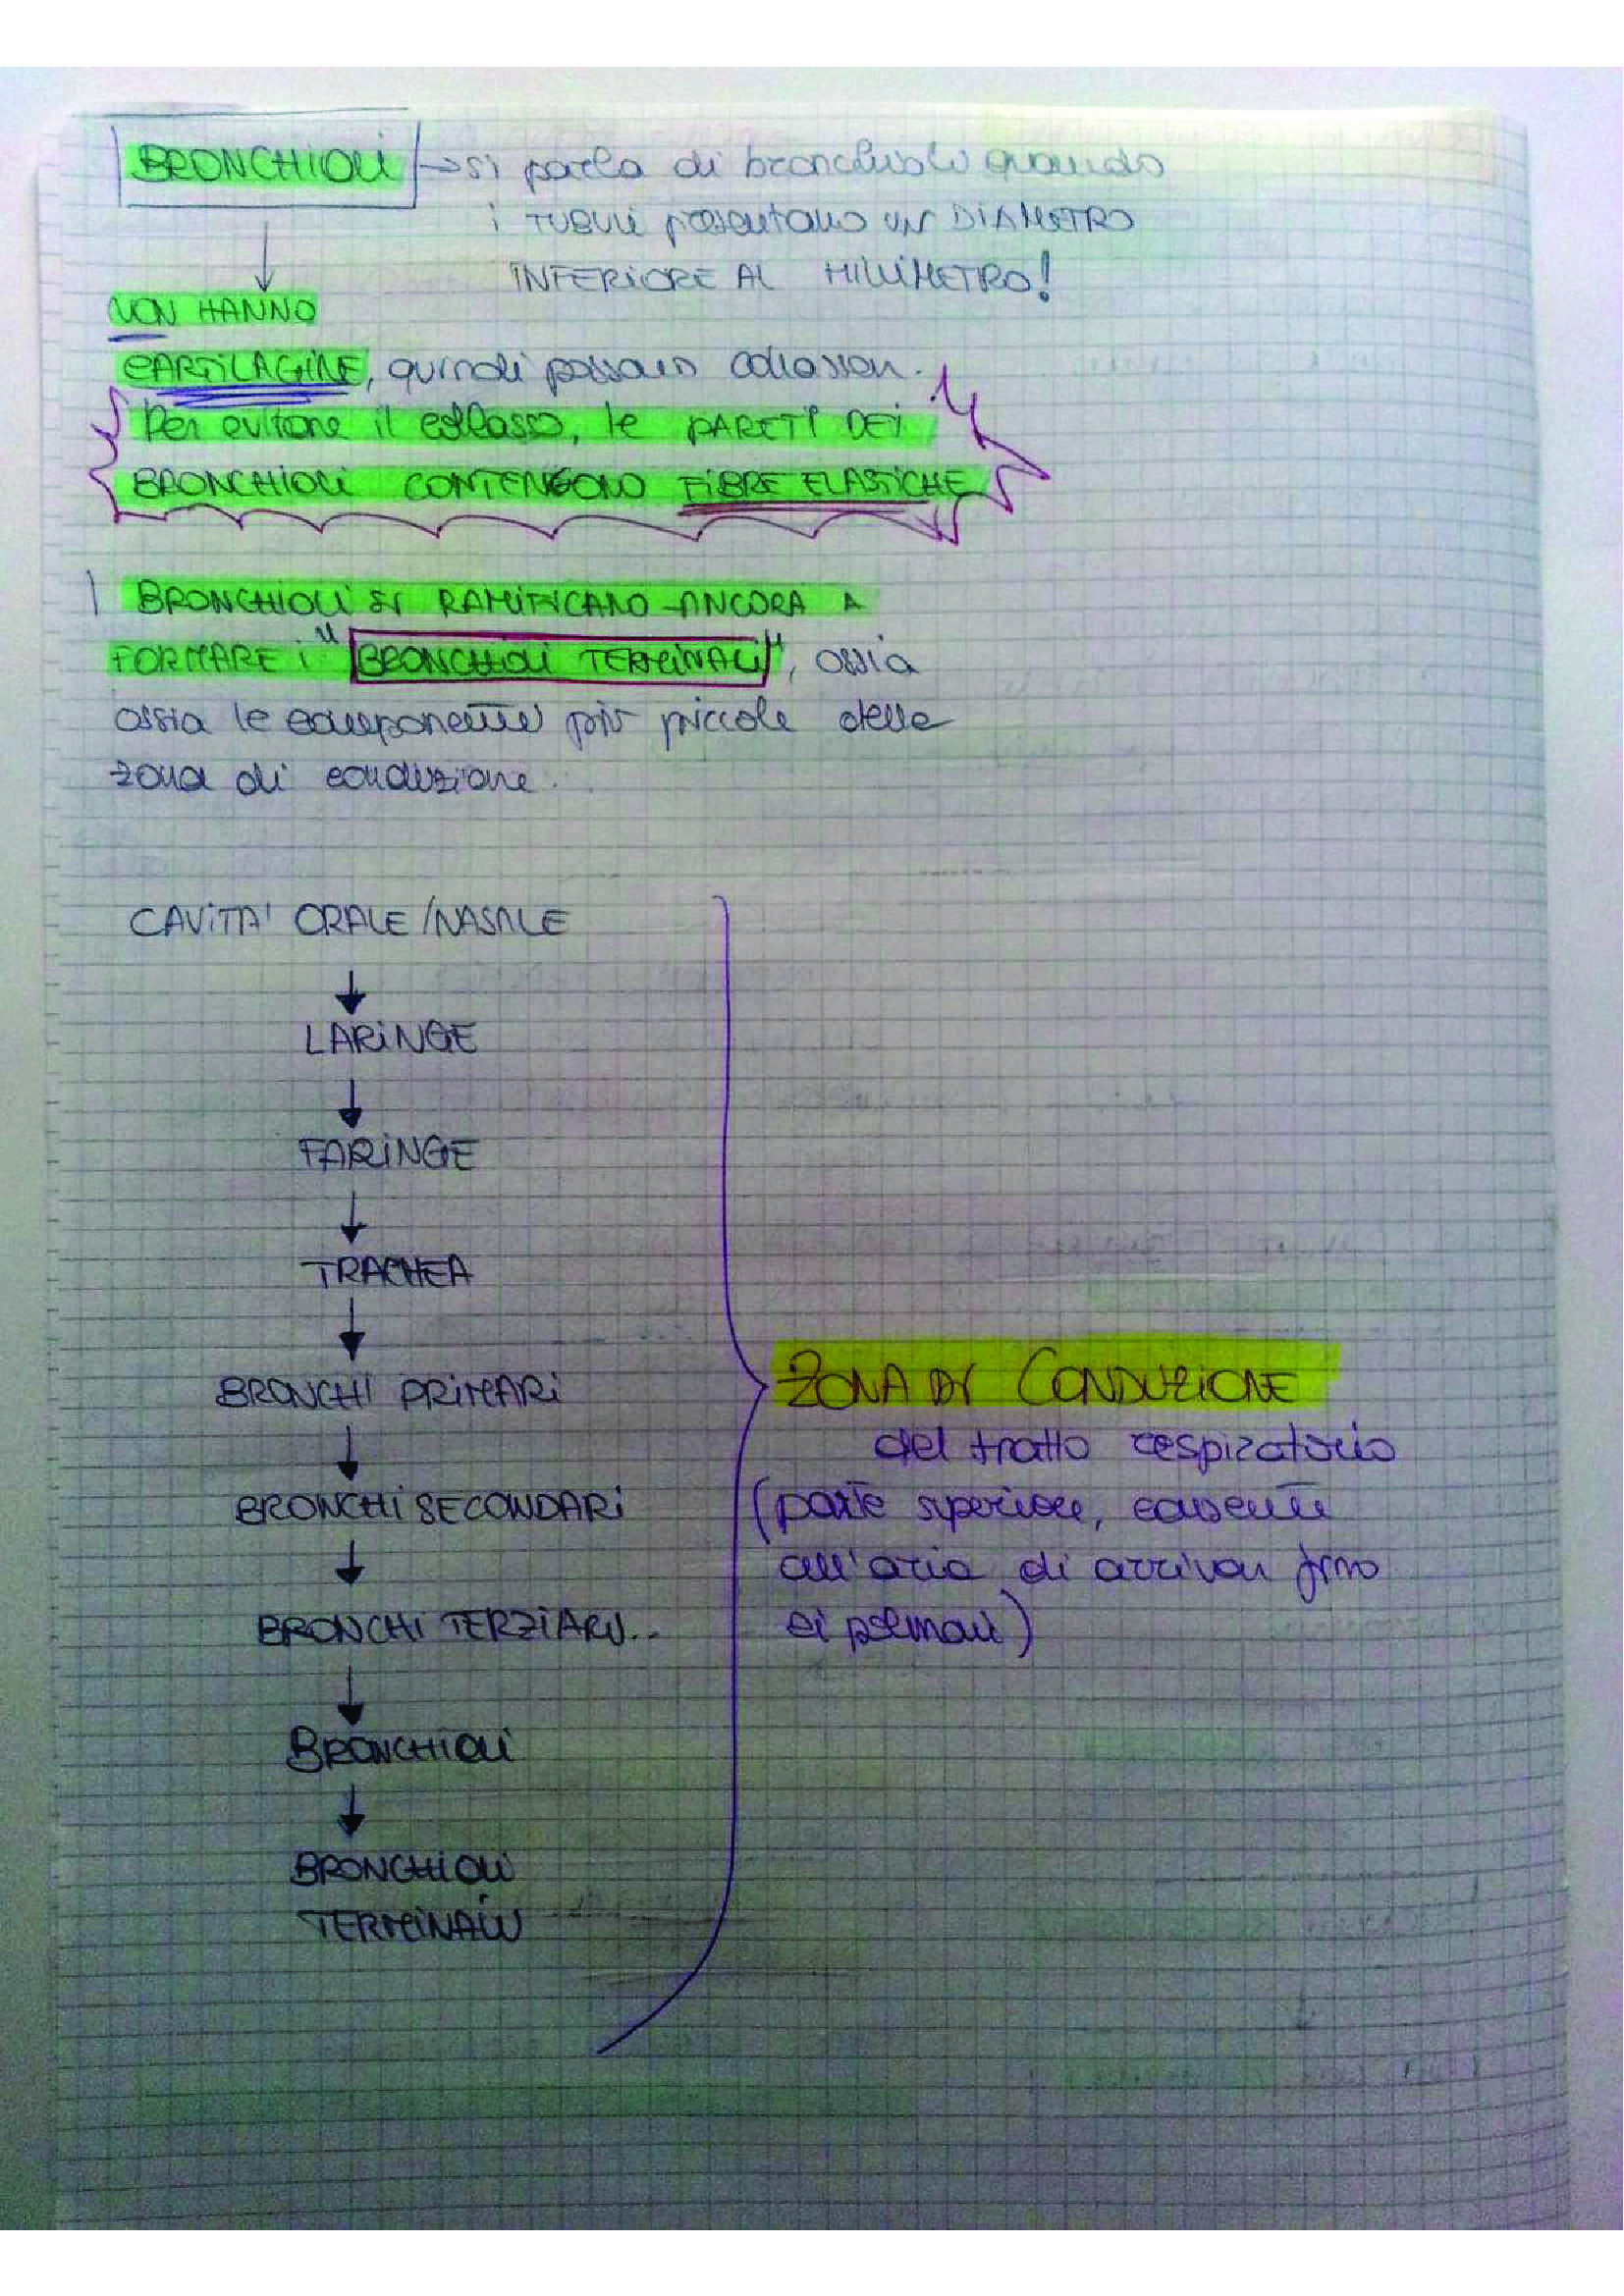 BRONCHIOLI → si parla di bronchiolo quando
i TUBULI presentano un DIAMETRO
INFERIORE AL MILLIMETRO!
NON HANNO
CARTILAGINE, quindi possono collassare.
Per evitare il collasso, le PARETI DEI
BRONCHIOLI CONTENGONO FIBRE ELASTICHE
I BRONCHIOLI SI RAMIFICANO ANCORA A
FORMARE i "BRONCHIOLI TERMINALI", ossia
ossia le componenti più piccole della
zona di conduzione.
CAVITA' ORALE/NASALE
↓
LARINGE
↓
FARINGE
↓
TRACHEA
↓
BRONCHI PRIMARI
↓
BRONCHI SECONDARI
↓
BRONCHI TERZIARI...
↓
BRONCHIOLI
↓
BRONCHIOLI
TERMINALI
ZONA DI CONDUZIONE
del tratto respiratorio
(parte superiore, consente
all'aria di arrivare fino
ai polmoni)